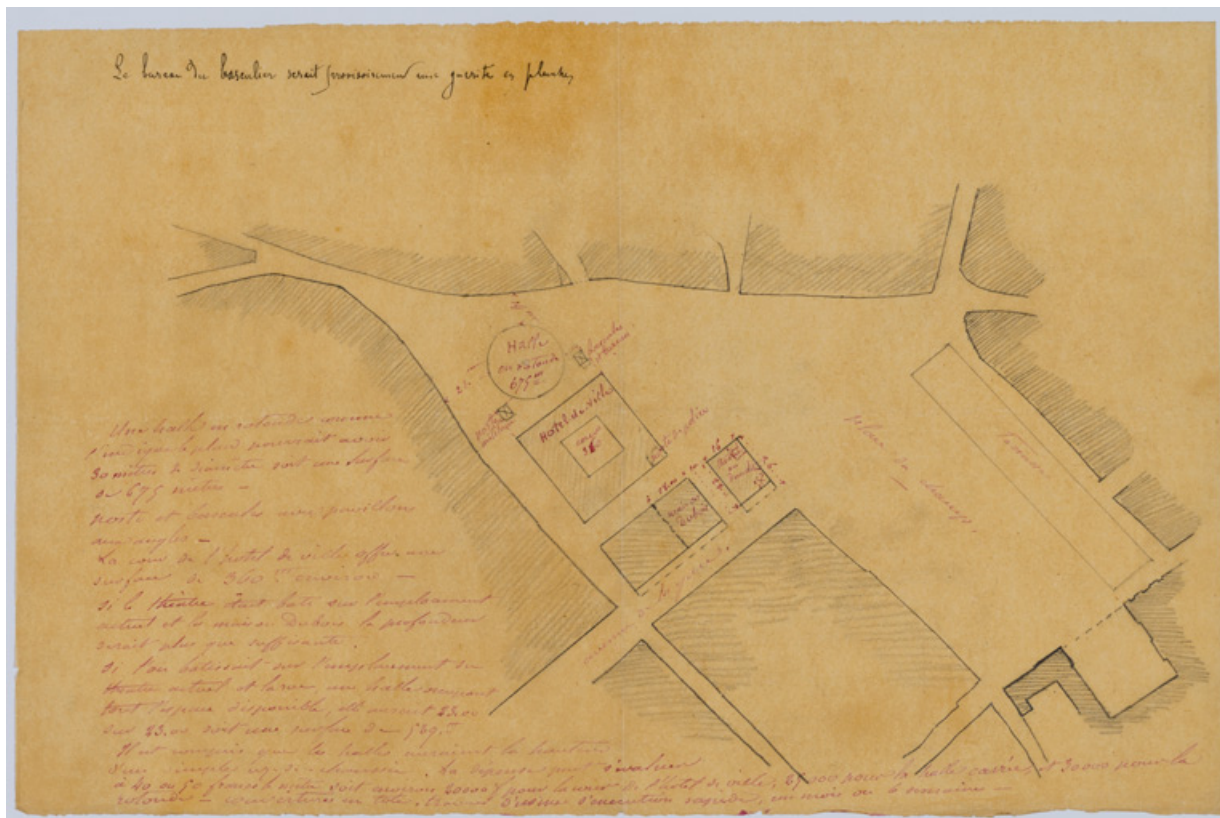 Le bureau du basculier serait provisoirement une guérite en planches
HALLE
en rotonde
675 m
24 m
Hotel de Ville
cour
360
place du champ
maison
Dubois
Une halle en rotonde comme
l'indique le plan pourrait avoir
30 mètres de diamètre soit une surface
de 675 mètres —
poste et bascules avec pavillons
aux angles —
La cour de l'hotel de ville offre une
surface de 360 m environ —
Si le théâtre était bati sur l'emplacement
actuel et la maison Dubois la profondeur
serait plus que suffisante.
Si l'on batissait sur l'emplacement du
théâtre actuel et la rue, une halle occupant
tout l'espace disponible, elle aurait 23.00
sur 23.00 soit une surface de 529. m
Il est compris que les halles auraient la hauteur
d'un simple rez-de-chaussée. La dépense peut s'évaluer
à 40 ou 50 francs le mètre soit environ 20000 f pour la cour de l'hotel de ville, 25,000 pour la halle carrée, et 30000 pour la
rotonde — couverture en tole, d'exécution rapide, un mois ou 6 semaines —